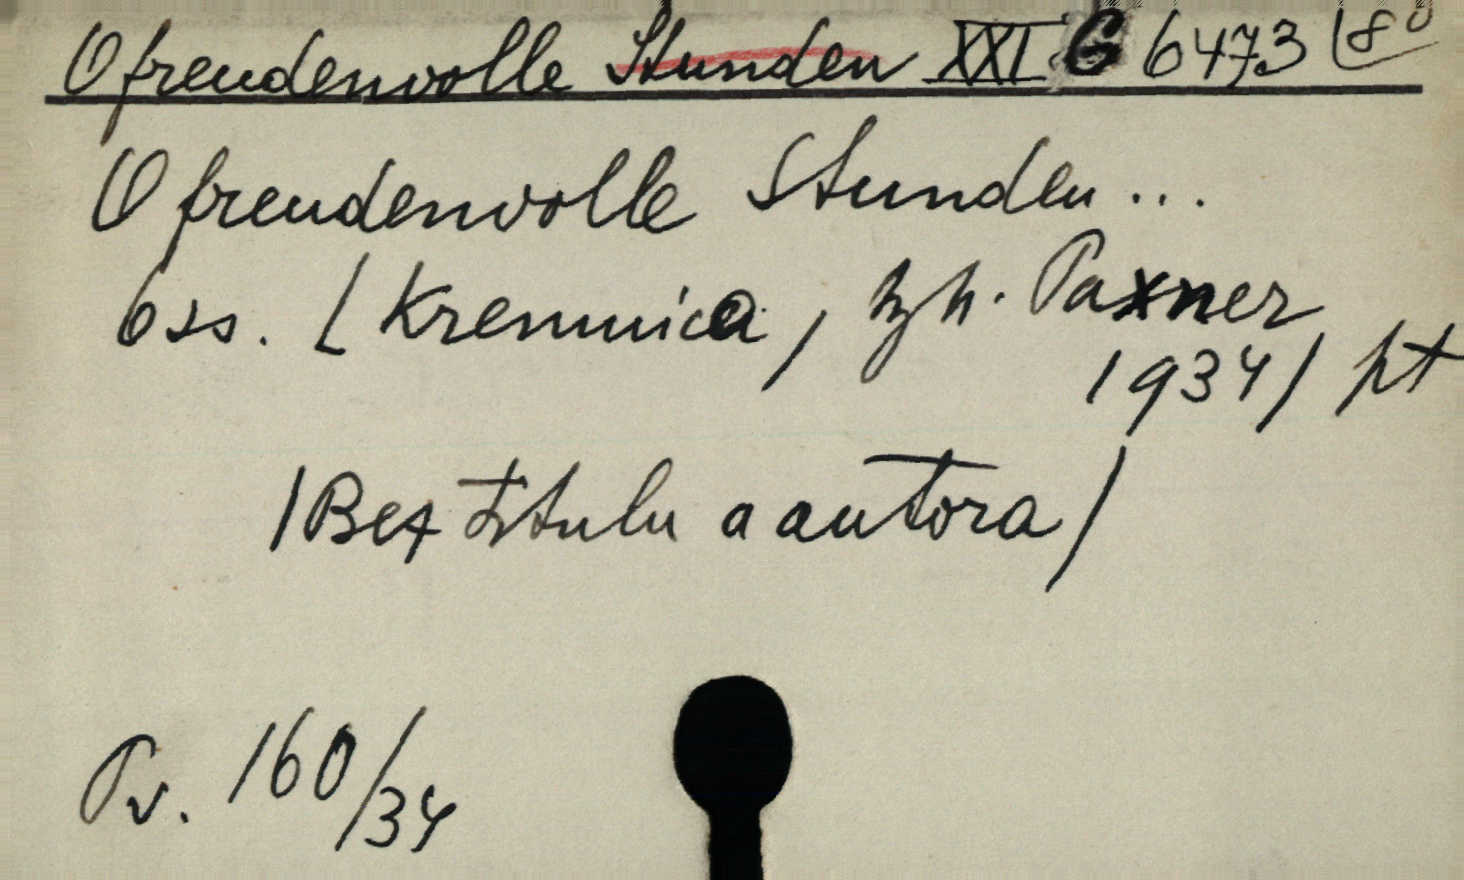 O freudenvolle Stunden XXI G 6473 8°
O freudenvolle Stunden...
6 ss. [Kremnica, tlh. Paxner
1934/ pt
/Bez titulu a autora/
Pv. 160/34